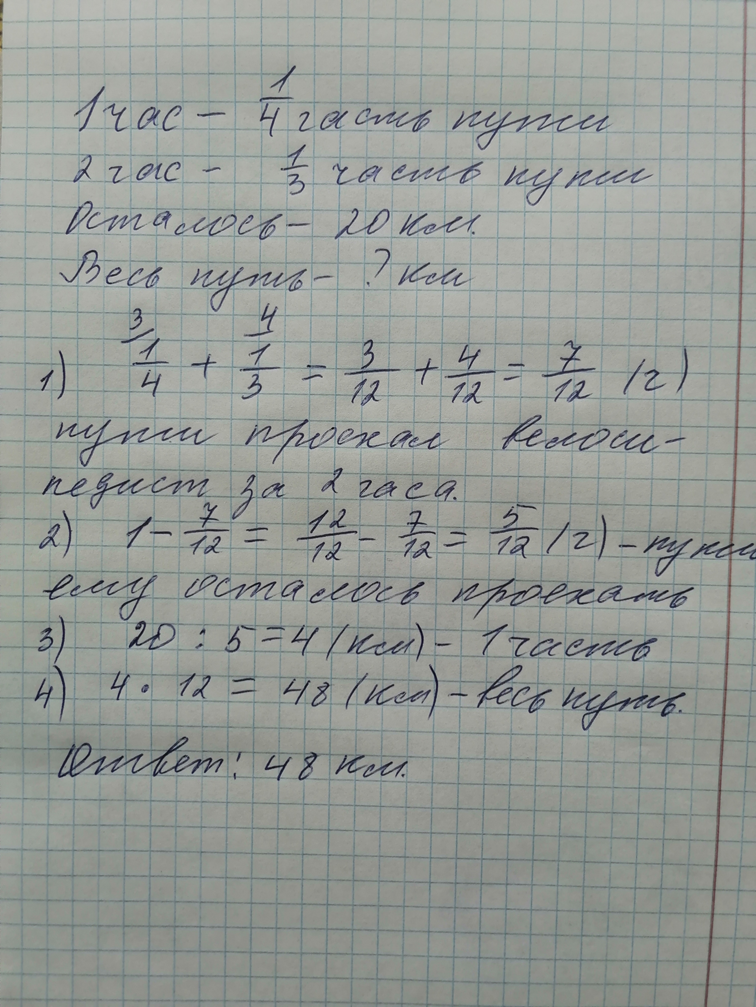 1 час – 1/4 часть пути
2 час – 1/3 часть пути
Осталось – 20 км.
Весь путь – ? км
1) 3/ 1/4 + 4/ 1/3 = 3/12 + 4/12 = 7/12 (ч)
пути проехал велоси-
педист за 2 часа.
2) 1 – 7/12 = 12/12 – 7/12 = 5/12 (ч) – пути
ему осталось проехать
3) 20 : 5 = 4 (км) – 1 часть
4) 4 · 12 = 48 (км) – весь путь.
Ответ: 48 км.